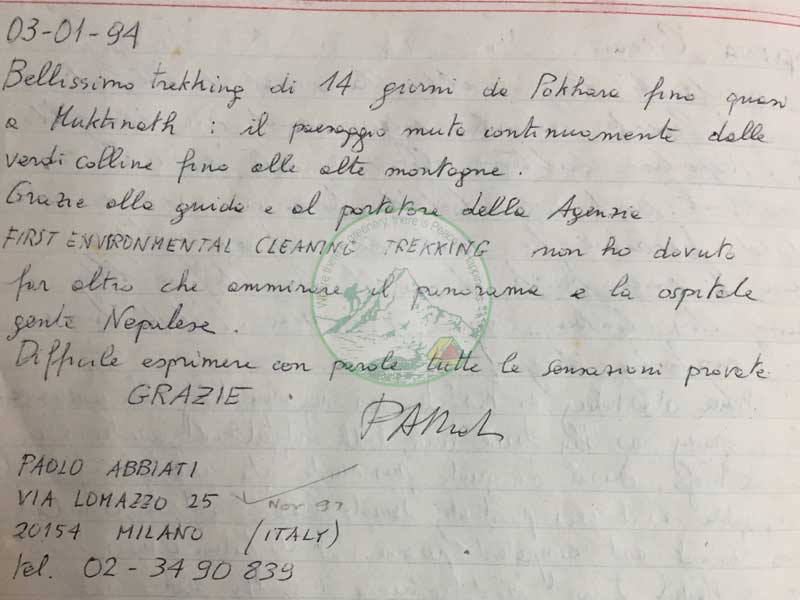 03-01-94
Bellissimo trekking di 14 giorni da Pokhara fino quasi
a Muktinath : il paesaggio muta continuamente dalle
verdi colline fino alle alte montagne.
Grazie alla guida e al portatore della Agenzia
FIRST ENVIRONMENTAL CLEANING TREKKING non ho dovuto
far altro che ammirare il panorama e la ospitale
gente Nepalese.
Difficile esprimere con parole tutte le sensazioni provate
GRAZIE.
PAOLO ABBIATI
VIA LOMAZZO 25
Nov 97
20154 MILANO (ITALY)
tel. 02-34 90 839